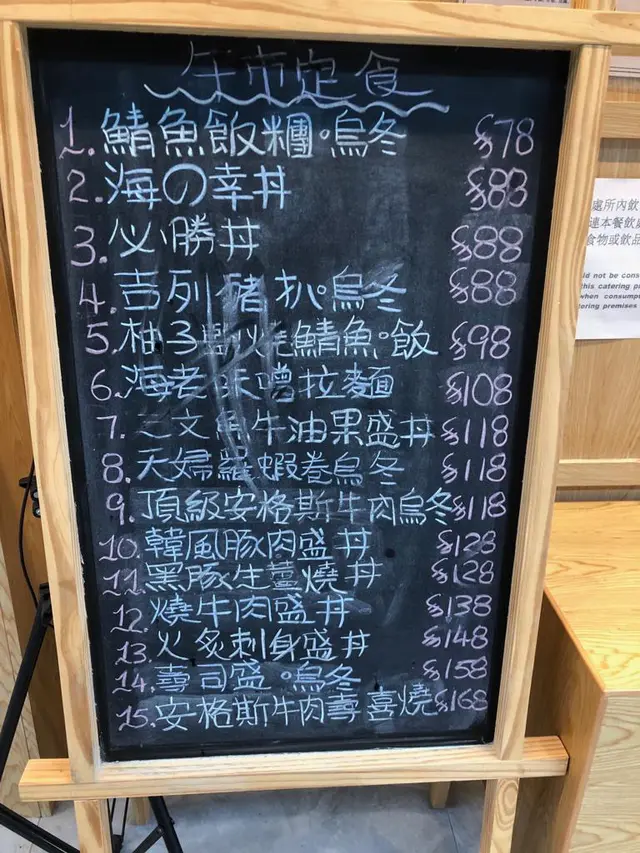 午市定食
1. 鯖魚飯糰。烏冬 $78
2. 海の幸丼 $88
3. 必勝丼 $88
4. 吉列豬扒。烏冬 $88
5. 柚子鹽燒鯖魚。飯 $98
6. 海老味噌拉麵 $108
7. 三文魚牛油果盛丼 $118
8. 天婦羅蝦卷烏冬 $118
9. 頂級安格斯牛肉烏冬 $118
10. 韓風豚肉盛丼 $128
11. 黑豚生薑燒丼 $128
12. 燒牛肉盛丼 $138
13. 火炙刺身盛丼 $148
14. 壽司盛。烏冬 $158
15. 安格斯牛肉壽喜燒 $168
處所內飲
連本餐飲處
食物或飲品
ld not be cons
this catering pr
when consump
tering premises